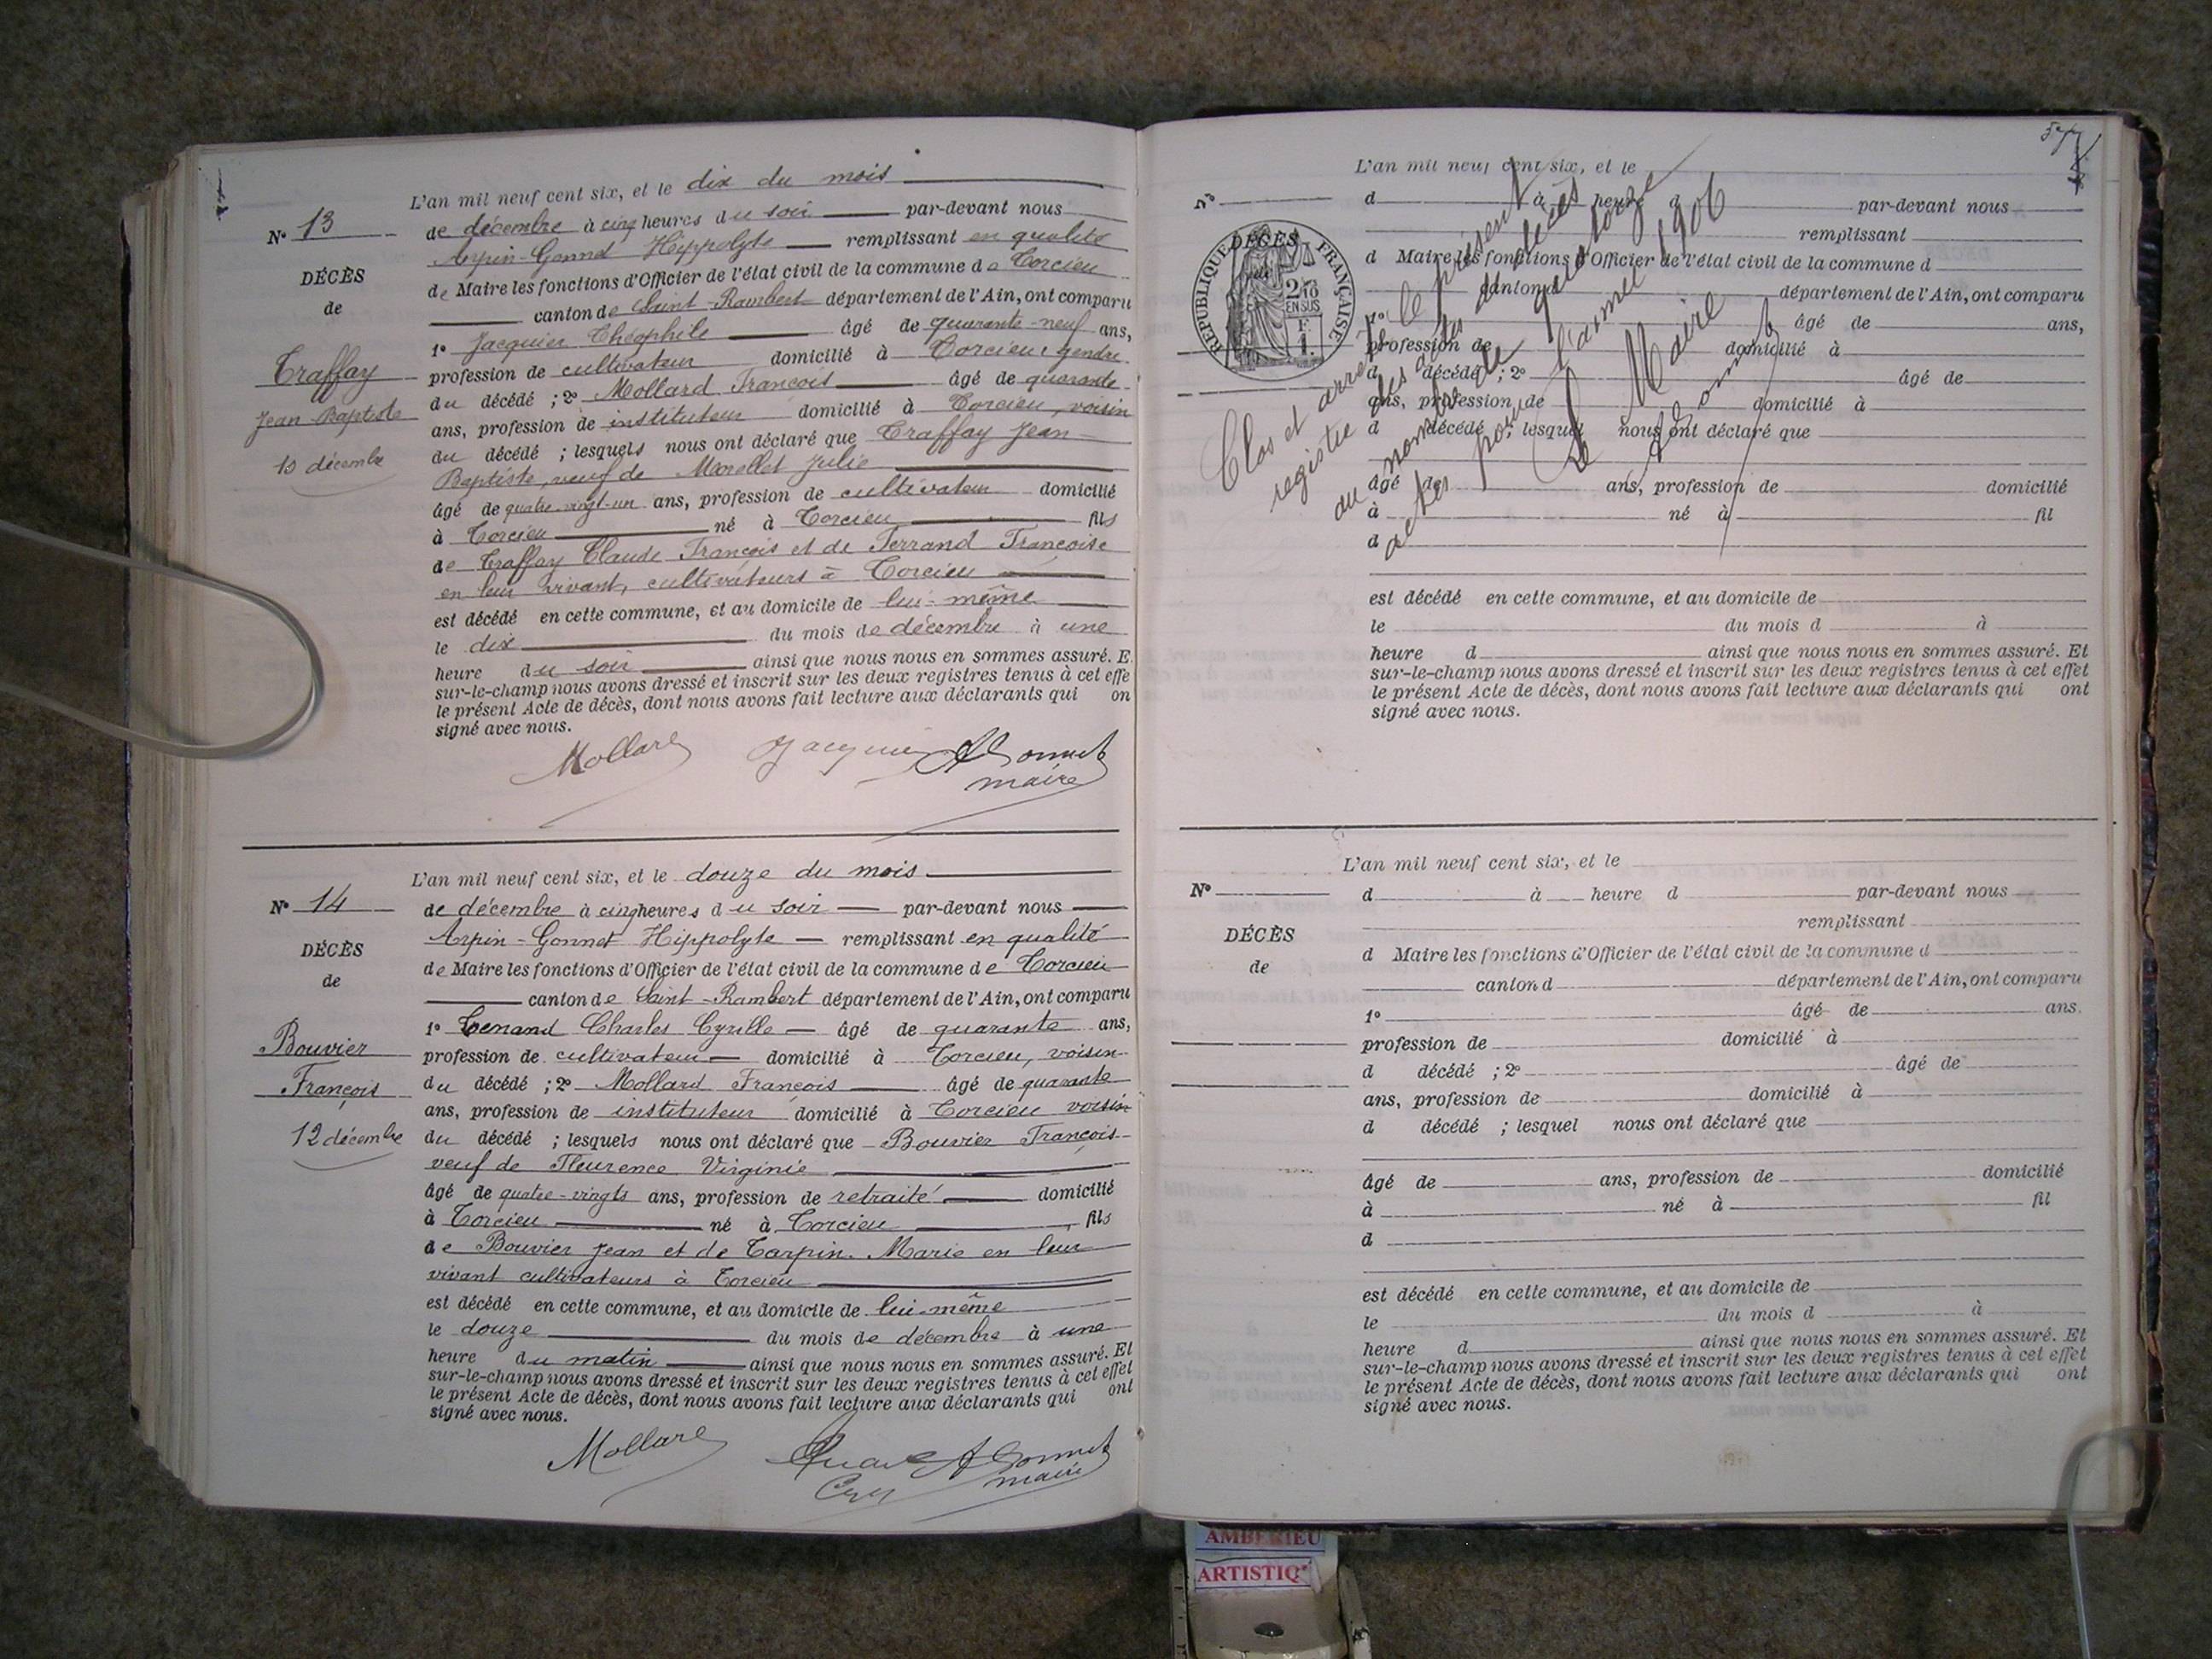 L'an mil neuf cent six, et le dix du mois
N° 13
de décembre à cinq heures du soir par-devant nous
Arpin-Gonnet Hippolyte remplissant en qualité
DÉCÈS
de Maire les fonctions d'Officier de l'état civil de la commune de Torcieu
de
canton de Saint-Rambert département de l'Ain, ont comparu
1° Jacquier Théophile âgé de quarante-neuf ans,
Traffay
profession de cultivateur domicilié à Torcieu, gendre
Jean-Baptiste
du décédé ; 2° Mollard François âgé de quarante
ans, profession de instituteur domicilié à Torcieu, voisin
10 décembre
du décédé ; lesquels nous ont déclaré que Traffay Jean-
Baptiste, veuf de Morellet Julie
âgé de quatre-vingt-un ans, profession de cultivateur domicilié
à Torcieu né à Torcieu fils
de Traffay Claude François et de Ferrand Françoise
en leur vivant, cultivateurs à Torcieu
est décédé en cette commune, et au domicile de lui-même
le dix du mois de décembre à une
heure du soir ainsi que nous nous en sommes assuré. E
sur-le-champ nous avons dressé et inscrit sur les deux registres tenus à cet effe
le présent Acte de décès, dont nous avons fait lecture aux déclarants qui on
signé avec nous.
Mollard Jacquier AGonnet
maire
L'an mil neuf cent six, et le douze du mois
N° 14
de décembre à cinq heures du soir par-devant nous
Arpin-Gonnet Hippolyte remplissant en qualité
DÉCÈS
de Maire les fonctions d'Officier de l'état civil de la commune de Torcieu
de
canton de Saint-Rambert département de l'Ain, ont comparu
1° Charles Cyrille âgé de quarante ans,
Bouvier
profession de cultivateur domicilié à Torcieu, voisin
François
du décédé ; 2° Mollard François âgé de quarante
ans, profession de instituteur domicilié à Torcieu voisin
12 décembre
du décédé ; lesquels nous ont déclaré que Bouvier François
veuf de Fleurence Virginie
âgé de quatre-vingts ans, profession de retraité domicilié
à Torcieu né à Torcieu fils
de Bouvier Jean et de Tarpin Marie en leur
vivant cultivateurs à Torcieu
est décédé en cette commune, et au domicile de lui-même
le douze du mois de décembre à une
heure du matin ainsi que nous nous en sommes assuré. Et
sur-le-champ nous avons dressé et inscrit sur les deux registres tenus à cet effet
le présent Acte de décès, dont nous avons fait lecture aux déclarants qui ont
signé avec nous.
Mollard AGonnet
maire
57
L'an mil neuf cent six, et le
N°
d à heure d par-devant nous
remplissant
DÉCÈS
de
d Maire les fonctions d'Officier de l'état civil de la commune d
canton d département de l'Ain, ont comparu
RÉPUBLIQUE FRANÇAISE
2/10
EN SUS
F.
1.
1° âgé de ans,
profession de domicilié à
d décédé ; 2° âgé de
ans, profession de domicilié à
d décédé ; lesquel nous ont déclaré que
âgé de ans, profession de domicilié
à né à fil
d
est décédé en cette commune, et au domicile de
le du mois d à
heure d ainsi que nous nous en sommes assuré. Et
sur-le-champ nous avons dressé et inscrit sur les deux registres tenus à cet effet
le présent Acte de décès, dont nous avons fait lecture aux déclarants qui ont
signé avec nous.
Clos et arrêté le présent
registre des actes de décès
au nombre de quatorze
actes pour l'année 1906
Le Maire
AGonnet
L'an mil neuf cent six, et le
N°
d à heure d par-devant nous
remplissant
DÉCÈS
d Maire les fonctions d'Officier de l'état civil de la commune d
de
canton d département de l'Ain, ont comparu
1° âgé de ans.
profession de domicilié à
d décédé ; 2° âgé de
ans, profession de domicilié à
d décédé ; lesquel nous ont déclaré que
âgé de ans, profession de domicilié
à né à fil
d
est décédé en cette commune, et au domicile de
le du mois d à
heure d ainsi que nous nous en sommes assuré. Et
sur-le-champ nous avons dressé et inscrit sur les deux registres tenus à cet effet
le présent Acte de décès, dont nous avons fait lecture aux déclarants qui ont
signé avec nous.
AMBERIEU
ARTISTIQ